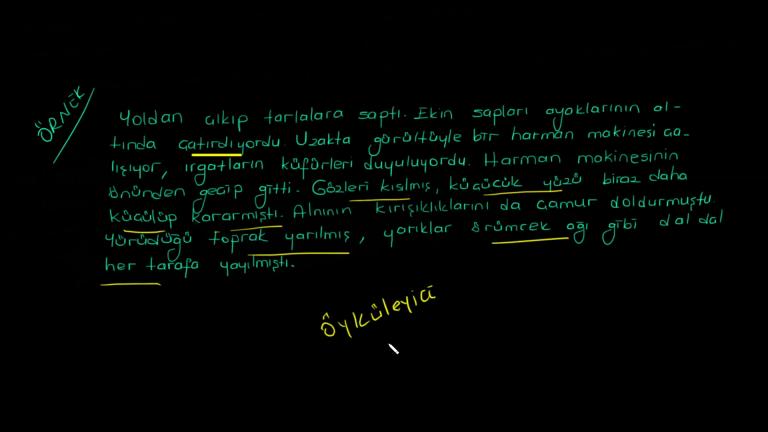 ÖRNEK
Yoldan çıkıp tarlalara saptı. Ekin sapları ayaklarının al-
tında çatırdıyordu. Uzakta gürültüyle bir harman makinesi ça-
lışıyor, ırgatların küfürleri duyuluyordu. Harman makinesinin
önünden geçip gitti. Gözleri kısılmış, küçücük yüzü biraz daha
küçülüp kararmıştı. Alnının kırışıklıklarını da çamur doldurmuştu
Yürüdüğü toprak yarılmış, yarıklar örümcek ağı gibi dal dal
her tarafa yayılmıştı.
Öyküleyici